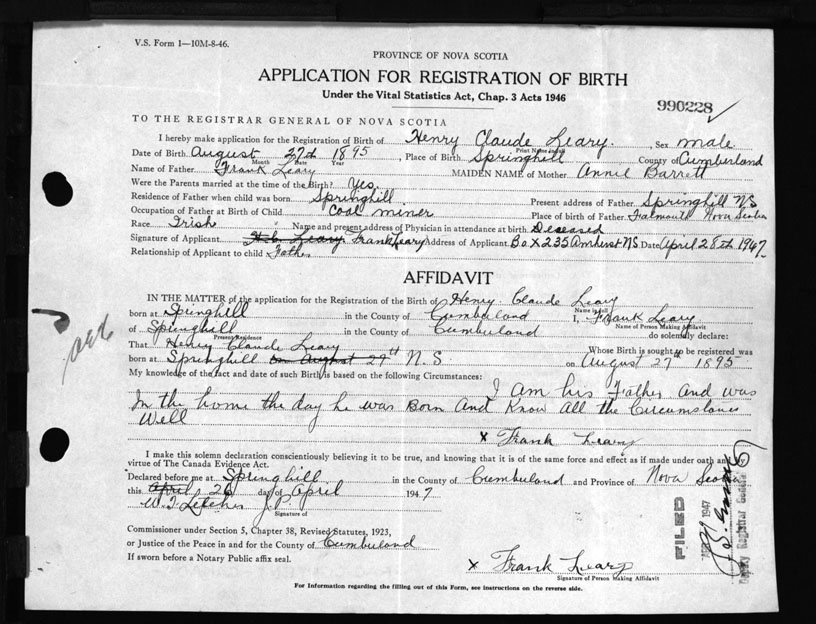 V.S. Form 1—10M-8-46.
PROVINCE OF NOVA SCOTIA
APPLICATION FOR REGISTRATION OF BIRTH
Under the Vital Statistics Act, Chap. 3 Acts 1946
990228
TO THE REGISTRAR GENERAL OF NOVA SCOTIA
I hereby make application for the Registration of Birth of Henry Claude Leary. Sex male
Print Name in full
Date of Birth August 27th 1895, Place of Birth Springhill County of Cumberland
Month Date Year
Name of Father Frank Leary MAIDEN NAME of Mother Annie Barrett
Were the Parents married at the time of the Birth? Yes.
Residence of Father when child was born Springhill Present address of Father Springhill NS
Occupation of Father at Birth of Child Coal miner Place of birth of Father Falmouth Nova Scotia
Race Irish Name and present address of Physician in attendance at birth Deceased
Signature of Applicant H.C. Leary Frank Leary Address of Applicant Box 235 Amherst NS. Date April 28th 1947
Relationship of Applicant to child Father
AFFIDAVIT
IN THE MATTER of the application for the Registration of the Birth of Henry Claude Leary
Name in full
born at Springhill in the County of Cumberland I, Frank Leary
Name of Person Making Affidavit
of Springhill in the County of Cumberland do solemnly declare:
Present Residence
That Henry Claude Leary Whose Birth is sought to be registered was
born at Springhill on August 27th N.S. on August 27th 1895
My knowledge of the fact and date of such Birth is based on the following Circumstances:
I Am his Father And was
In the home the day he was Born And Know All the Circumstances
Well
x Frank Leary
I make this solemn declaration conscientiously believing it to be true, and knowing that it is of the same force and effect as if made under oath and by
virtue of The Canada Evidence Act.
Declared before me at Springhill in the County of Cumberland and Province of Nova Scotia
this April 28 day of April 1947
Signature of
Commissioner under Section 5, Chapter 38, Revised Statutes, 1923,
or Justice of the Peace in and for the County of Cumberland
If sworn before a Notary Public affix seal.
x Frank Leary
Signature of Person Making Affidavit
FILED
1947
Deputy Registrar General
For Information regarding the filling out of this Form, see instructions on the reverse side.